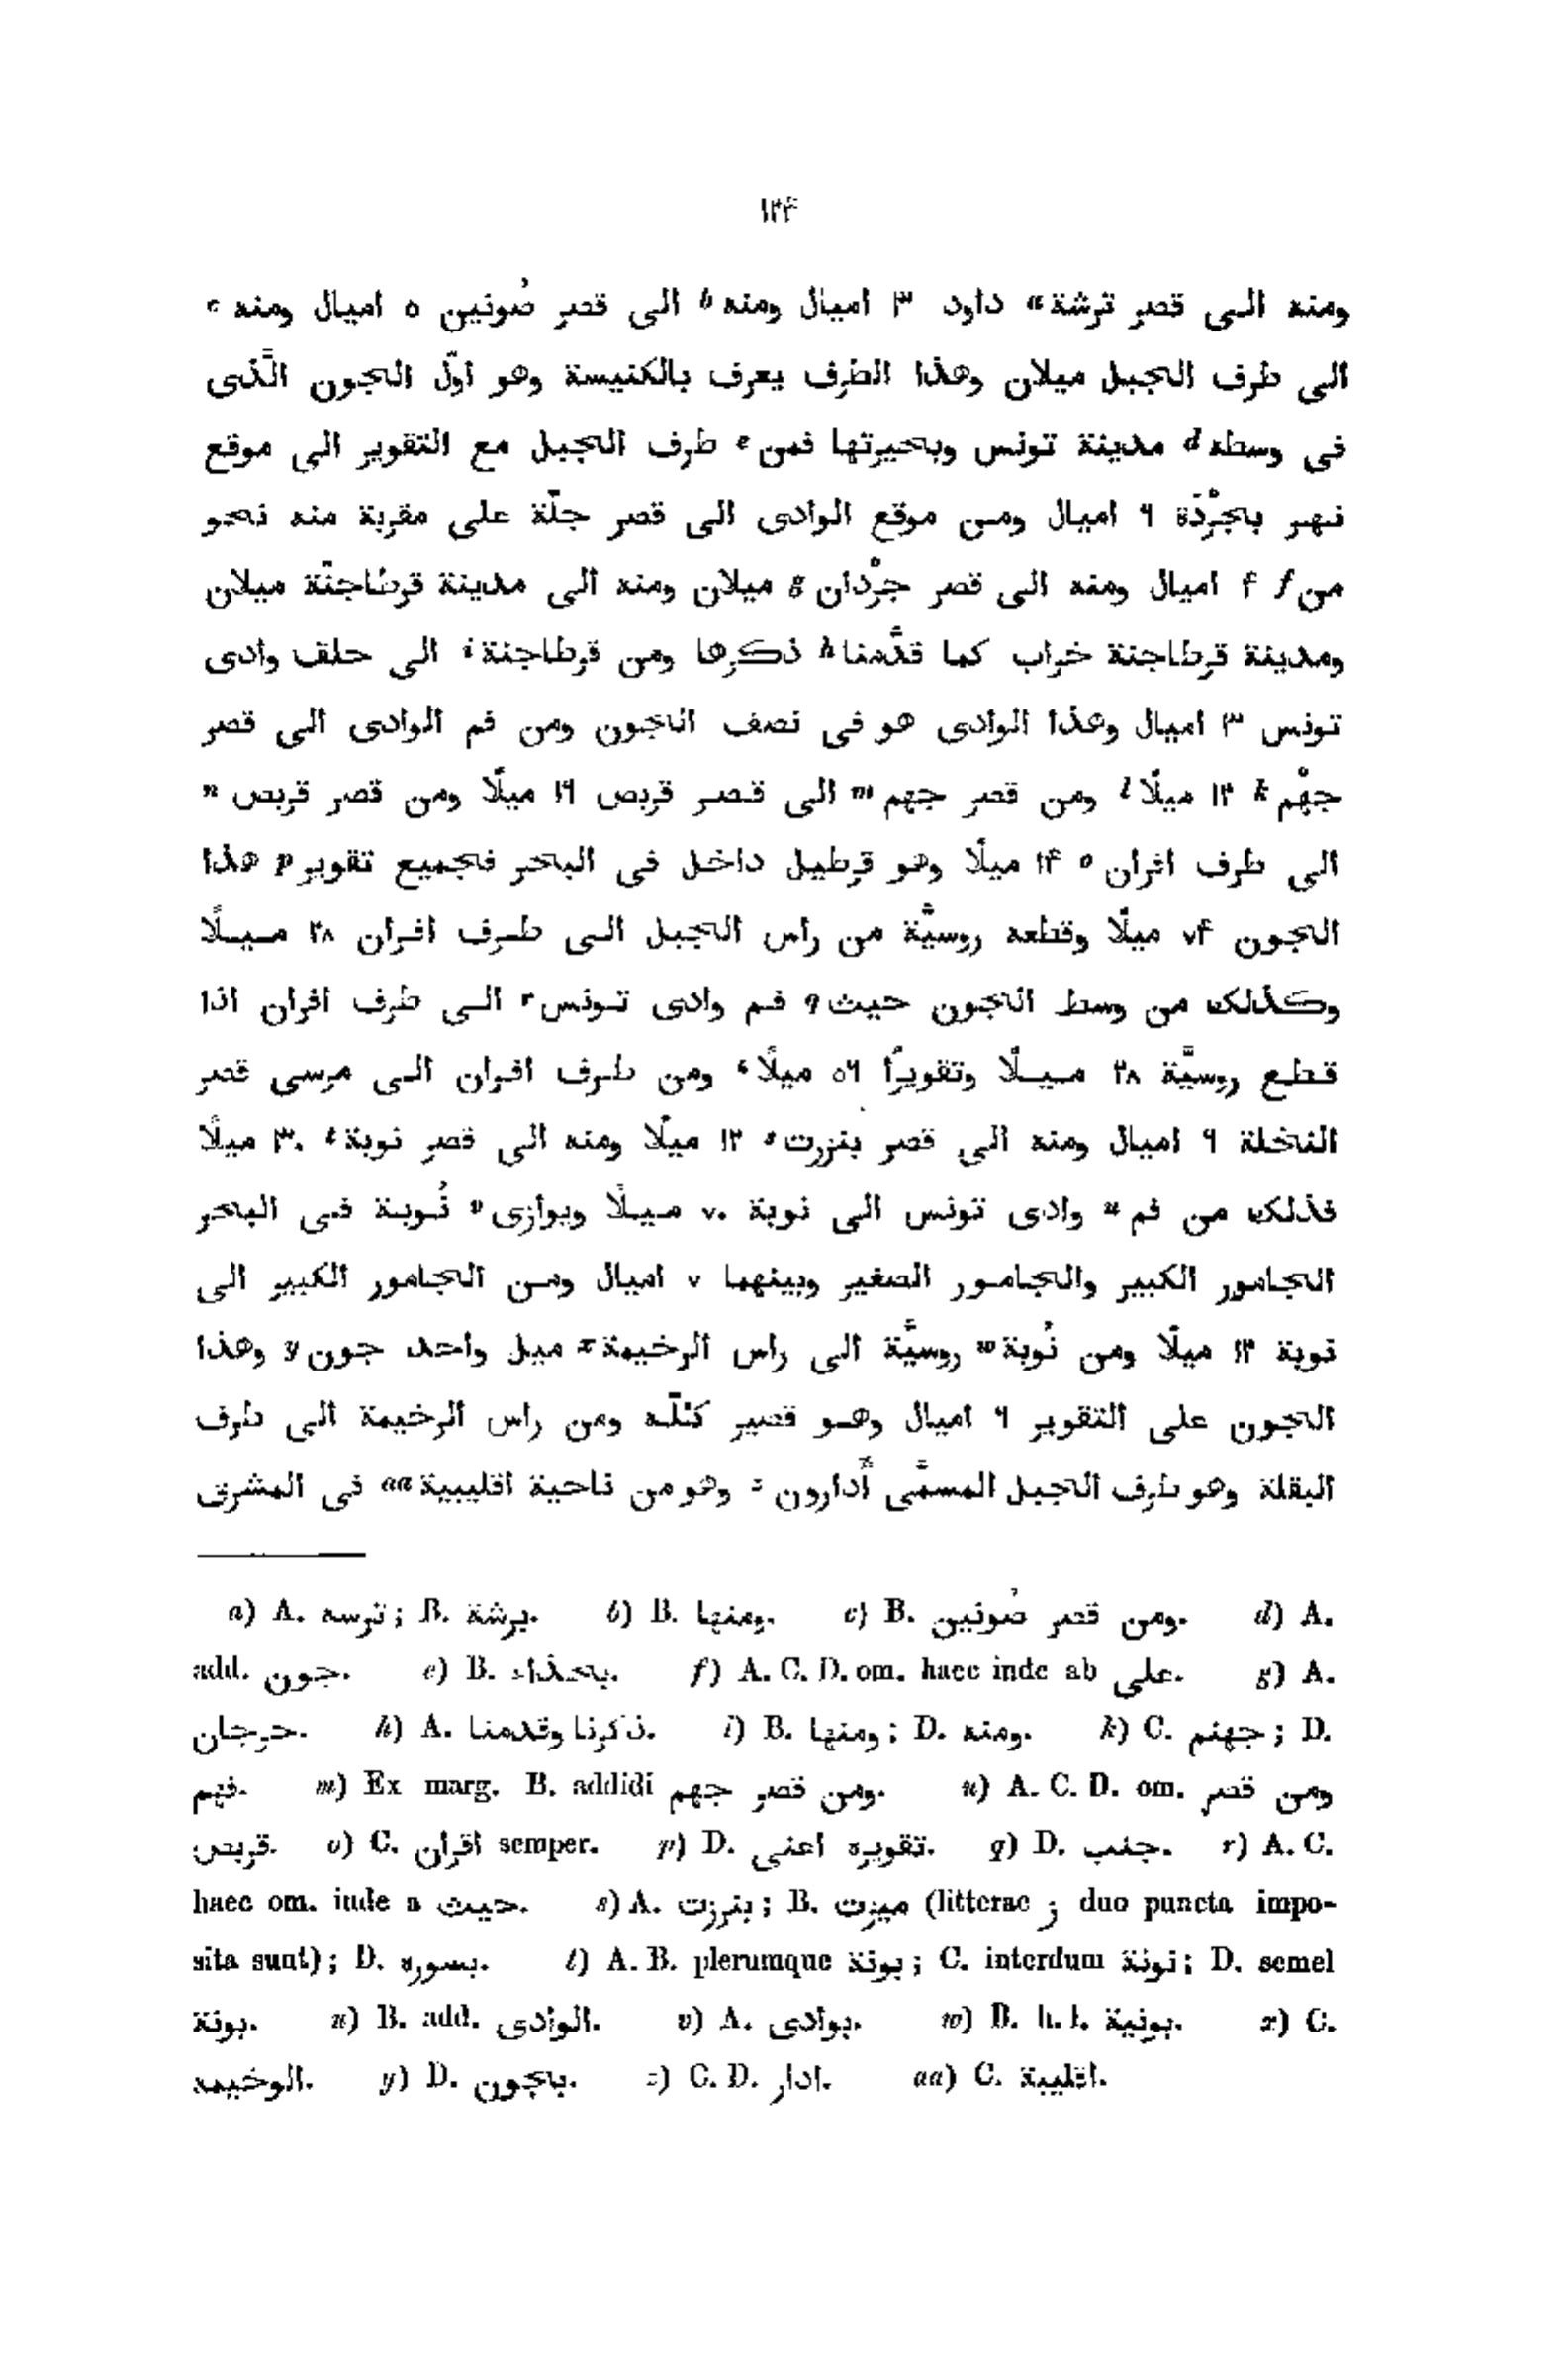 ١٢۴
ومنه الى قصر ترشة a داود ٣ اميال ومنه b الى قصر صُونين ٥ اميال ومنه c
الى طرف الجبل ميلان وهذا الطرف يعرف بالكنيسة وهو اوّل الجون الّذى
فى وسطه d مدينة تونس وبحيرتها فمن e طرف الجبل مع التقوير الى موقع
نهر بَجْرْدَة ٦ اميال ومن موقع الوادى الى قصر جلّة على مقربة منه نحو
من f ۴ اميال ومنه الى قصر جرْدان g ميلان ومنه الى مدينة قرطاجنّة ميلان
ومدينة قرطاجنة خراب كما قدَّمنا h ذكرها ومن قرطاجنة i الى حلق وادى
تونس ٣ اميال وهذا الوادى هو فى نصف الجون ومن فم الوادى الى قصر
جهْم k ١٢ ميلًا l ومن قصر جهم m الى قصر قربص ١٦ ميلًا ومن قصر قربص n
الى طرف افران o ١۴ ميلًا وهو قرطيل داخل فى البحر فجميع تقوير p هذا
الجون ٧۴ ميلًا وقطعه روسيَّة من راس الجبل الى طرف افران ٢٨ ميلًا
وكذلك من وسط الجون حيث q فم وادى تونس r الى طرف افران اذا
قطع روسيَّة ٢٨ ميلًا وتقويرًا ٥٦ ميلًا ومن طرف افران الى مرسى قصر
النخلة ٦ اميال ومنه الى قصر بنزرت s ١٢ ميلًا ومنه الى قصر نوبة t ٣٠ ميلًا
فذلك من فم u وادى تونس الى نوبة ٧٠ ميلًا ويوازى v نُوبة فى البحر
الجامور الكبير والجامور الصغير وبينهما ٧ اميال ومن الجامور الكبير الى
نوبة ١٢ ميلًا ومن نُوبة w روسيَّة الى راس الرخيمة x ميل واحد جون y وهذا
الجون على التقوير ٦ اميال وهو قصير كلّه ومن راس الرخيمة الى طرف
البقلة وهو طرف الجبل المسمَّى أَدارون z وهو من ناحية اقليبية aa فى المشرق
a) A. ترسه; B. برشة. b) B. ومنها. c) B. ومن قصر صُونين. d) A.
add. جون. e) B. بحذاء. f) A. C. D. om. haec inde ab على. g) A.
حرجان. h) A. ذكرنا وقدمنا. i) B. ومنها; D. ومنه. k) C. جهنم; D.
فهم. m) Ex marg. B. addidi ومن قصر جهم. n) A. C. D. om. ومن قصر
قربص. o) C. اقران semper. p) D. تقويره اعنى. q) D. جنب. r) A. C.
haec om. inde a حيث. s) A. بنرزت; B. ميزت (litterae ز duo puncta impo-
sita sunt); D. بسوره. t) A. B. plerumque بونة; C. interdum نونة; D. semel
بونة. u) B. add. الوادى. v) A. بوادى. w) B. h. l. بونية. x) C.
الوخيمه. y) D. باجون. z) C. D. ادار. aa) C. اقليبة.